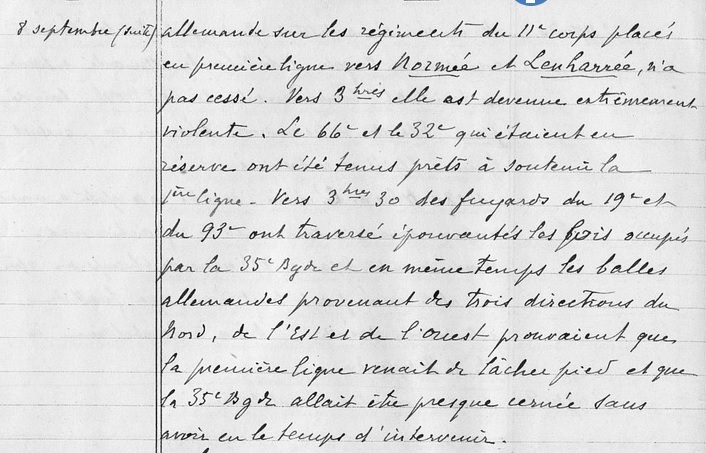 8 septembre (suite) allemande sur les régiments du 11e corps placés
en première ligne vers Normée et Lenharrée, n'a
pas cessé. Vers 3 hres elle est devenue extrêmement
violente. Le 66e et le 32e qui étaient en
réserve ont été tenus prêts à soutenir la
1ère ligne - Vers 3 hres 30 des fuyards du 19e et
du 93e ont traversé épouvantés les bois occupés
par la 35e Bgde et en même temps les balles
allemandes provenant des trois directions du
Nord, de l'Est et de l'Ouest prouvaient que
la première ligne venait de lâcher pied et que
la 35e Bgde allait être presque cernée sans
avoir eu le temps d'intervenir.